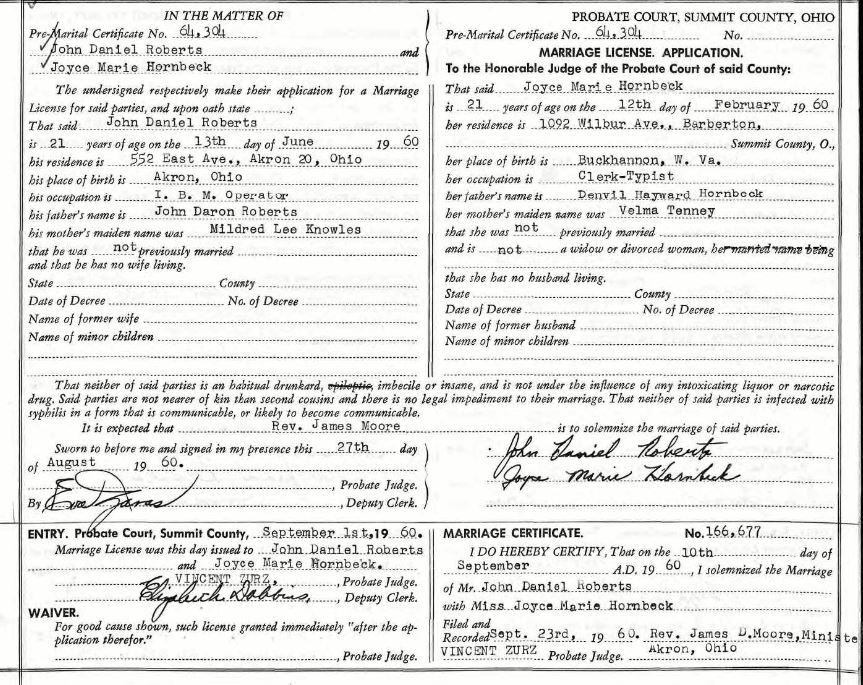 IN THE MATTER OF
Pre-Marital Certificate No. 64,304
John Daniel Roberts and
Joyce Marie Hornbeck
The undersigned respectively make their application for a Marriage
License for said parties, and upon oath state ;
That said John Daniel Roberts
is 21 years of age on the 13th day of June 19 60
his residence is 552 East Ave., Akron 20, Ohio
his place of birth is Akron, Ohio
his occupation is I. B. M. Operator
his father's name is John Daron Roberts
his mother's maiden name was Mildred Lee Knowles
that he was not previously married
and that he has no wife living.
State County
Date of Decree No. of Decree
Name of former wife
Name of minor children
PROBATE COURT, SUMMIT COUNTY, OHIO
Pre-Marital Certificate No. 64,304 No.
MARRIAGE LICENSE. APPLICATION.
To the Honorable Judge of the Probate Court of said County:
That said Joyce Marie Hornbeck
is 21 years of age on the 12th day of February 19 60
her residence is 1092 Wilbur Ave., Barberton,
Summit County, O.,
her place of birth is Buckhannon, W. Va.
her occupation is Clerk-Typist
her father's name is Denvil Hayward Hornbeck
her mother's maiden name was Velma Tenney
that she was not previously married
and is not a widow or divorced woman, her married name being
that she has no husband living.
State County
Date of Decree No. of Decree
Name of former husband
Name of minor children
That neither of said parties is an habitual drunkard, epileptic, imbecile or insane, and is not under the influence of any intoxicating liquor or narcotic
drug. Said parties are not nearer of kin than second cousins and there is no legal impediment to their marriage. That neither of said parties is infected with
syphilis in a form that is communicable, or likely to become communicable.
It is expected that Rev. James Moore is to solemnize the marriage of said parties.
Sworn to before me and signed in my presence this 27th day
of August 19 60.
, Probate Judge.
By Eva , Deputy Clerk.
John Daniel Roberts
Joyce Marie Hornbeck
ENTRY. Probate Court, Summit County, September 1st, 19 60.
Marriage License was this day issued to John Daniel Roberts
and Joyce Marie Hornbeck.
VINCENT ZURZ, , Probate Judge.
Elizabeth Dobbins, , Deputy Clerk.
WAIVER.
For good cause shown, such license granted immediately "after the ap-
plication therefor."
, Probate Judge.
MARRIAGE CERTIFICATE. No. 166,677
I DO HEREBY CERTIFY, That on the 10th day of
September A.D. 19 60 , I solemnized the Marriage
of Mr. John Daniel Roberts
with Miss Joyce Marie Hornbeck
Filed and
Recorded Sept. 23rd, 19 60. Rev. James D.Moore,Ministe
VINCENT ZURZ Probate Judge. Akron, Ohio